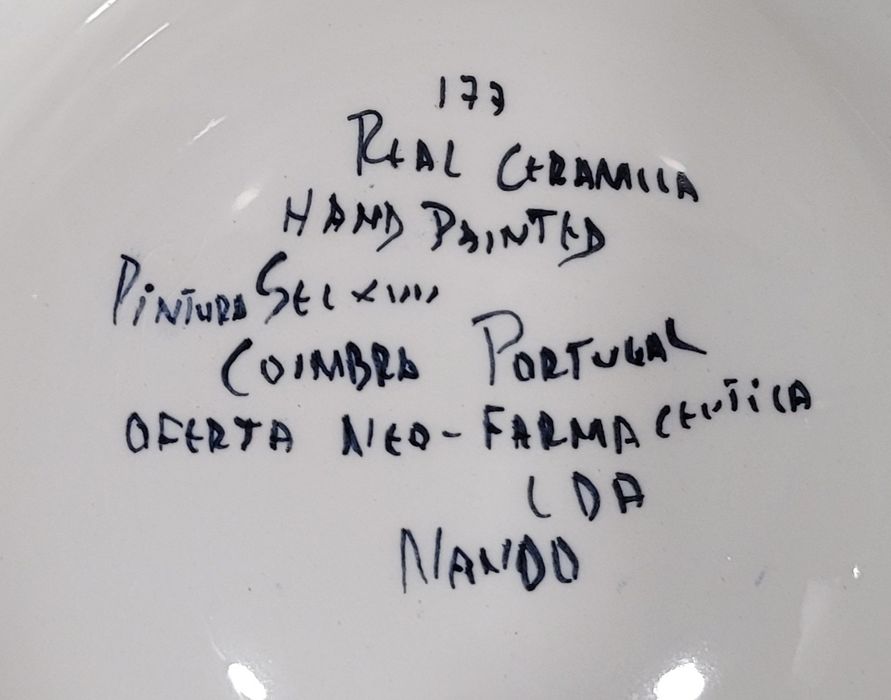 177
REAL CERAMICA
HAND PAINTED
PINTURA SEC XVIII
COIMBRA PORTUGAL
OFERTA NEO-FARMACEUTICA
LDA
NANDO